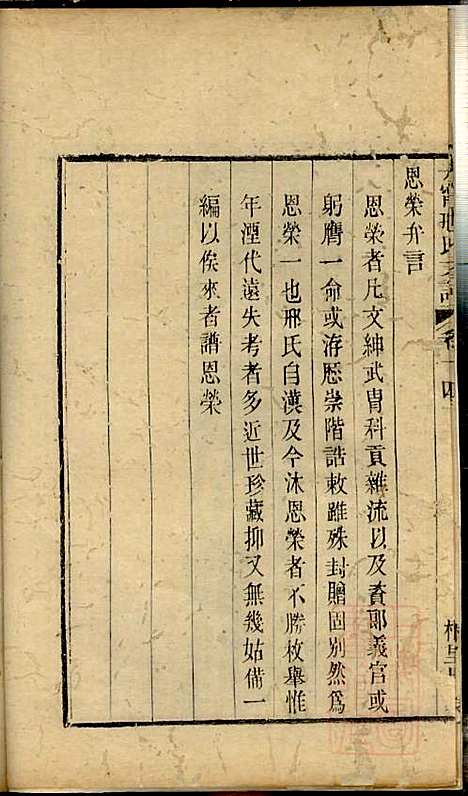 邢氏
卷十四
恩榮弁言
恩榮者凡文紳武胄科貢雜流以及賫郎義官或
躬膺一命或洊歷崇階誥敕雖殊封贈固別然爲
恩榮一也邢氏自漢及今沐恩榮者不勝枚舉惟
年湮代遠失考者多近世珍藏抑又無幾姑備一
編以俟來者譜恩榮